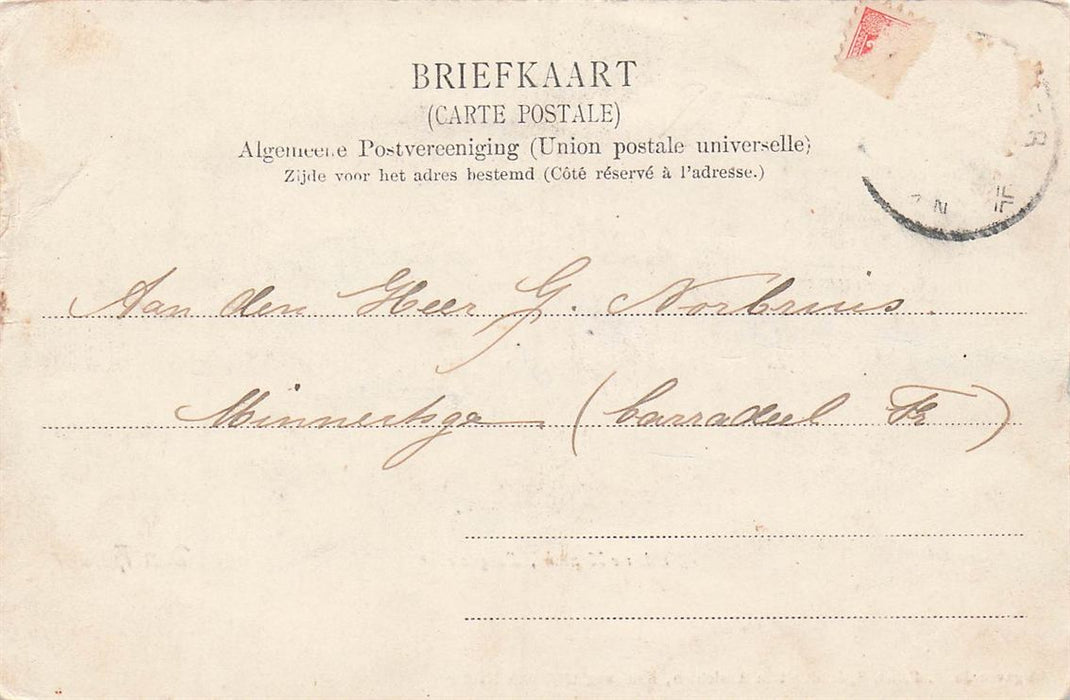 BRIEFKAART
(CARTE POSTALE)
Algemeene Postvereeniging (Union postale universelle)
Zijde voor het adres bestemd (Côté réservé à l'adresse.)
Aan den Heer G. Norbruis.
Minnertsga (barradeel Fr)